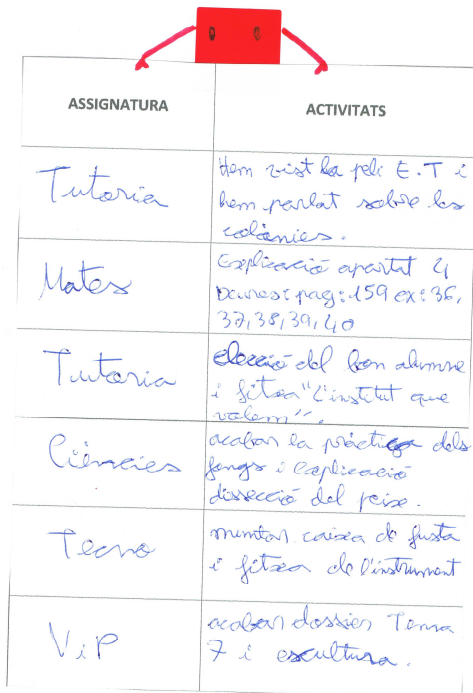 ASSIGNATURA
ACTIVITATS
Tutoria
Hem vist la peli E.T i
hem parlat sobre les
colònies.
Mates
Explicació apartat 4
Deures: pag: 159 ex: 36,
37, 38, 39, 40
Tutoria
elecció del bon alumne
i fitxa "L'institut que
volem".
Ciències
acabar la pràctica dels
fongs i explicació
dissecció del peixe.
Tecno
muntar caixa de fusta
i fitxa de l'instrument
ViP
acabar dossier Tema
7 i escultura.